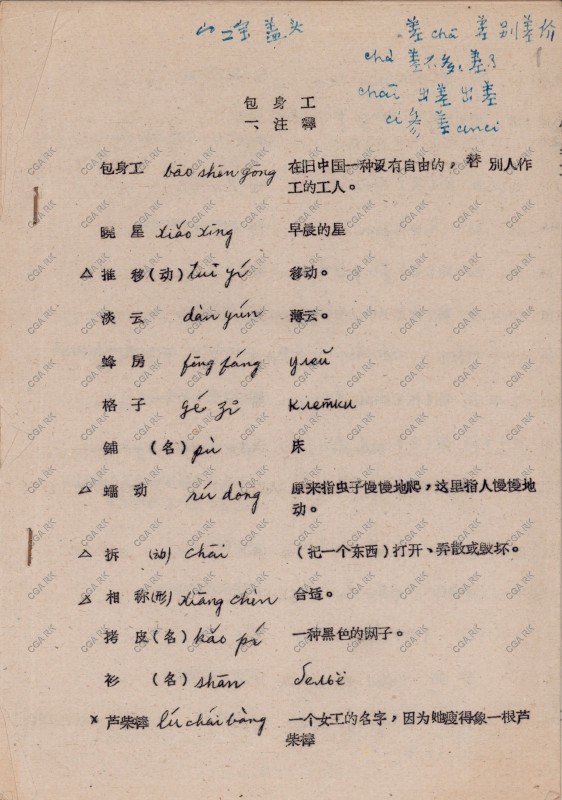 宀 宝盖头
差 chā 差别差价
chà 差不多、差了
chāi 出差 出差
ci 参差 cēnci
包身工
一、注釋
包身工 bāo shēn gōng 在旧中国一种沒有自由的，替別人作
工的工人。
曉星 xiǎo xīng 早晨的星
△ 推移(动) tuī yí 移动。
淡云 dàn yún 薄云。
蜂房 fēng fáng улей
格子 gé zǐ клетки
鋪 (名) pù 床
△ 蠕动 rú dòng 原来指虫子慢慢地爬，这里指人慢慢地
动。
△ 拆 (动) chāi (把一个东西)打开、弄散或毀坏。
△ 相称(形) xiāng chèn 合适。
拷皮(名) kǎo pí 一种黑色的网子。
衫 (名) shān бельё
× 芦柴 lú chái bàng 一个女工的名字，因为她瘦得象一根芦
柴
CGA RK